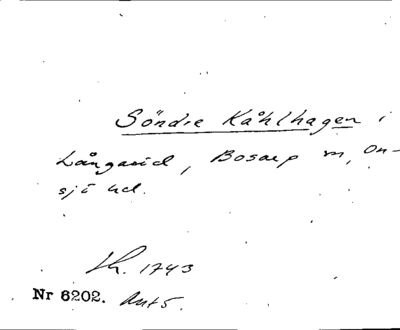 Söndre Kåhlhagen i
Långaröd, Bosarp m, On-
sjö hd.
Lh. 1743
Nr 6202. Ant 5.